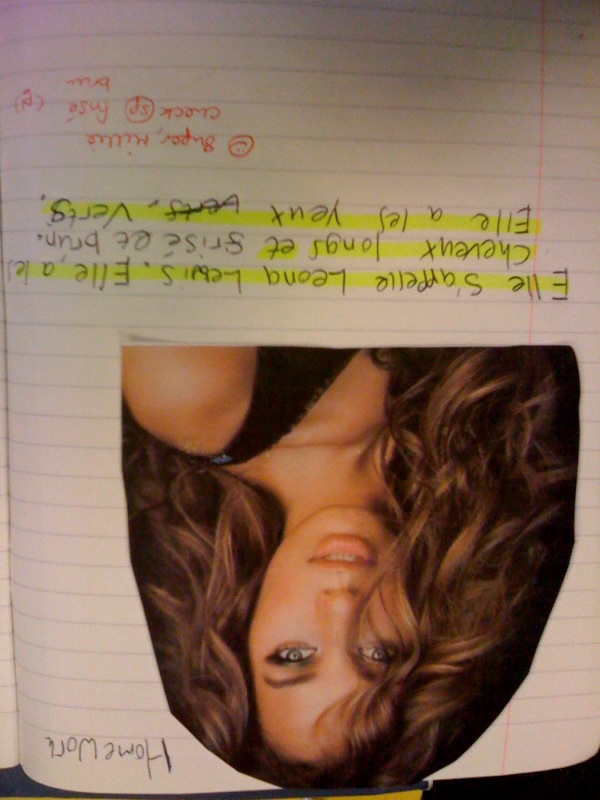 HomeWork
Elle s'appelle Leona Lewis. Elle, a les
cheveux longs et grisé et brun.
Elle a les yeux verts. Verts.
Super, Millie
check sp fusé (pl)
brun